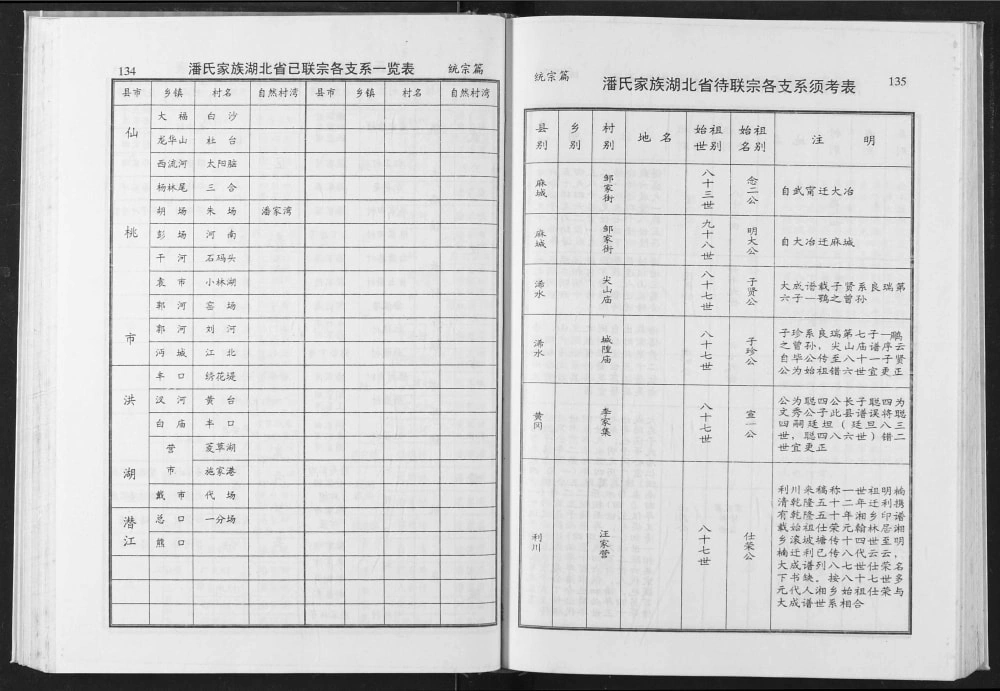 134 潘氏家族湖北省已联宗各支系一览表 统宗篇
县市 乡镇 村名 自然村湾 县市 乡镇 村名 自然村湾
仙桃市 大福 白沙
龙华山 杜台
西流河 太阳脑
杨林尾 三合
胡场 朱场 潘家湾
彭场 河南
干河 石码头
袁市 小林湖
郭河 窑场
郭河 刘河
沔城 江北
洪湖 丰口 绣花堤
汊河 黄台
白庙 丰口
营 菱草湖
市 施家港
戴市 代场
潜江 总口 一分场
熊口
统宗篇 潘氏家族湖北省待联宗各支系须考表 135
县别 乡别 村别 地名 始祖世别 始祖名别 注明
麻城 邹家街 八十三世 念二公 自武甯迁大冶
麻城 邹家街 九十八世 明大公 自大冶迁麻城
浠水 尖山庙 八十七世 子贤公 大成谱载子贤系良瑞第
六子一鹗之曾孙
浠水 城隍庙 八十七世 子珍公 子珍系良瑞第七子一鹏
之曾孙，尖山庙谱序云
自毕公传至八十一子贤
公为始祖错六世宜更正
黄冈 李家集 八十七世 宣一公 公为聪四公长子聪四为
文秀公子此县谱误将聪
四嗣廷坦（廷旦八三
世，聪四八六世）错二
世宜更正
利川 汪家营 八十七世 仕荣公 利川来稿称一世祖明楠
清乾隆五十二年迁利携
有乾隆五十年湘乡印谱
载始祖仕荣元翰林居湘
乡滚坡塘传十四世至明
楠迁利已传八代云云，
大成谱列八七世仕荣名
下书缺，按八十七世多
元代人湘乡始祖仕荣与
大成谱世系相合